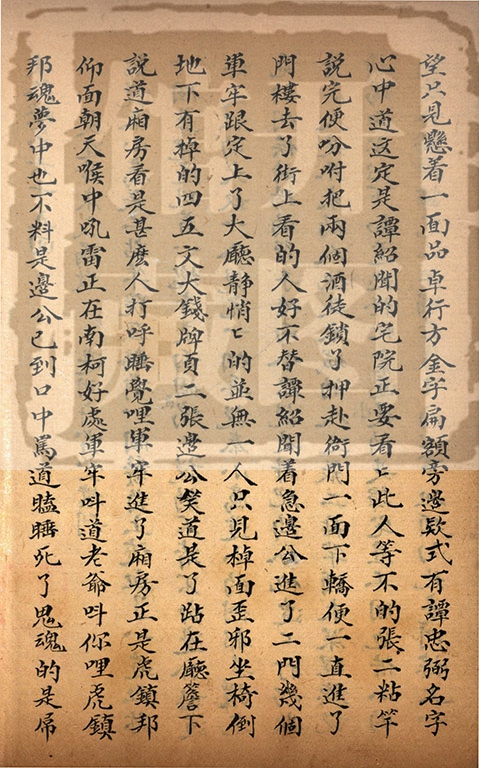 望只見懸着一面品卓行方金字扁額旁邊欵式有譚忠弼名字
心中道这定是譚紹聞的宅院正要看〻此人等不的張二粘竿
說完便吩咐把兩個酒徒鎖了押赴衙門一面下轎便一直進了
門樓去了街上看的人好不替譚紹聞着急邊公進了二門幾個
軍牢跟定上了大廳静悄〻的並無一人只見棹面歪邪坐椅倒
地下有掉的四五文大錢牌頁二張邊公笑道是了跕在廳簷下
說道廂房看是甚麽人打呼睡覺哩軍牢進了廂房正是虎鎮邦
仰面朝天喉中吼雷正在南柯好處軍牢呌道老爺呌你哩虎鎮
邦魂夢中也不料是邊公已到口中罵道瞌睡死了鬼魂的是屌